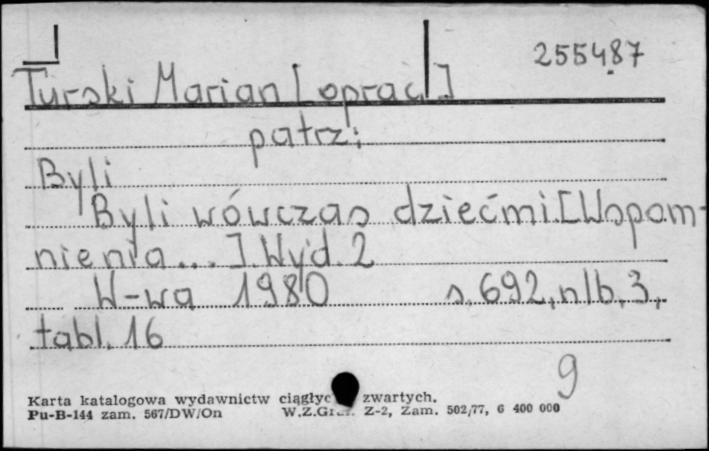 255487
Turski Marian [oprac]
patrz:
Byli
Byli wówczas dziećmi.[Wspom-
nienia...] Wyd. 2
W-wa 1980 s. 692, nlb. 3,
tabl. 16
9
Karta katalogowa wydawnictw zwartych.
Pu-B-144 zam. 567/DW/On W.Z.Graf. Z-2, Zam. 502/77, 6 400 000